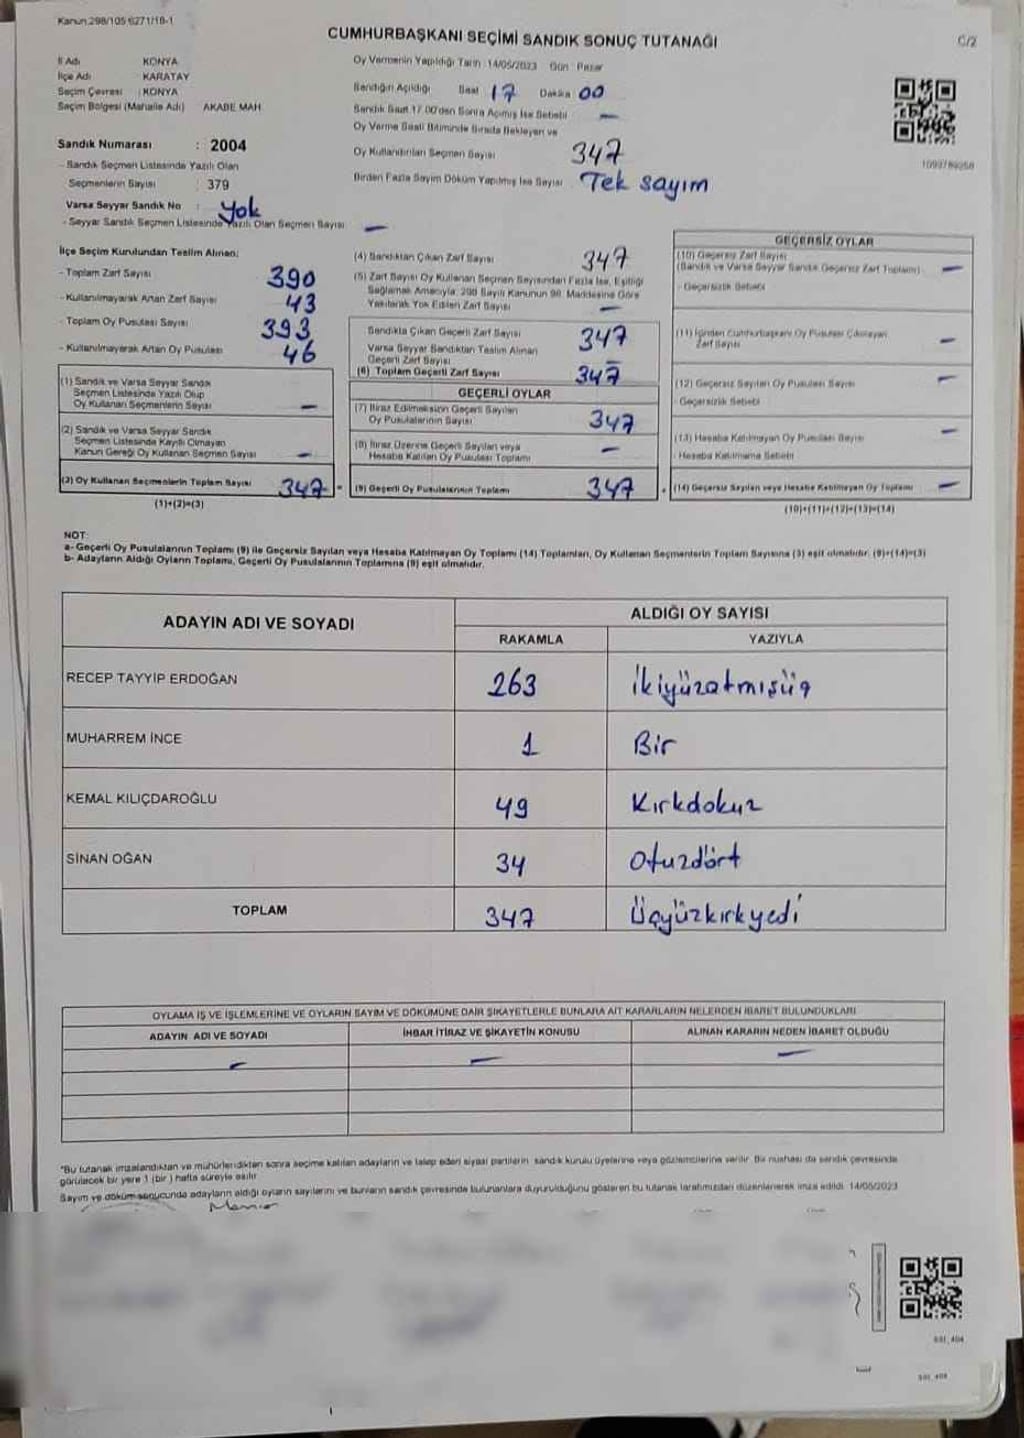 Kanun 298/105 6271/18-1
CUMHURBAŞKANI SEÇİMİ SANDIK SONUÇ TUTANAĞI
C/2
İl Adı KONYA
İlçe Adı KARATAY
Seçim Çevresi : KONYA
Seçim Bölgesi (Mahalle Adı) AKABE MAH.
Oy Vermenin Yapıldığı Tarih : 14/05/2023 Gün : Pazar
Sandığın Açıldığı Saat 17 Dakika 00
Sandık Saat 17.00'den Sonra Açılmış İse Sebebi —
Oy Verme Saati Bitiminde Sırada Bekleyen ve
Oy Kullandırılan Seçmen Sayısı 347
Birden Fazla Sayım Döküm Yapılmış İse Sayısı Tek sayım
1099789258
Sandık Numarası : 2004
- Sandık Seçmen Listesinde Yazılı Olan
Seçmenlerin Sayısı : 379
Varsa Seyyar Sandık No : Yok
- Seyyar Sandık Seçmen Listesinde Yazılı Olan Seçmen Sayısı —
İlçe Seçim Kurulundan Teslim Alınan;
- Toplam Zarf Sayısı 390
- Kullanılmayarak Artan Zarf Sayısı 43
- Toplam Oy Pusulası Sayısı 393
- Kullanılmayarak Artan Oy Pusulası 46
(1) Sandık ve Varsa Seyyar Sandık
Seçmen Listesinde Yazılı Olup
Oy Kullanan Seçmenlerin Sayısı —
(2) Sandık ve Varsa Seyyar Sandık
Seçmen Listesinde Kayıtlı Olmayan
Kanun Gereği Oy Kullanan Seçmen Sayısı —
(3) Oy Kullanan Seçmenlerin Toplam Sayısı 347 =
(1)+(2)=(3)
(4) Sandıktan Çıkan Zarf Sayısı 347
(5) Zarf Sayısı Oy Kullanan Seçmen Sayısından Fazla İse, Eşitliği
Sağlamak Amacıyla, 298 Sayılı Kanunun 98. Maddesine Göre
Yakılarak Yok Edilen Zarf Sayısı —
Sandıkta Çıkan Geçerli Zarf Sayısı 347
Varsa Seyyar Sandıktan Teslim Alınan
Geçerli Zarf Sayısı —
(6) Toplam Geçerli Zarf Sayısı 347
GEÇERLİ OYLAR
(7) İtiraz Edilmeksizin Geçerli Sayılan
Oy Pusulalarının Sayısı 347
(8) İtiraz Üzerine Geçerli Sayılan veya
Hesaba Katılan Oy Pusulası Toplamı —
(9) Geçerli Oy Pusulalarının Toplamı 347 +
GEÇERSİZ OYLAR
(10) Geçersiz Zarf Sayısı
(Sandık ve Varsa Seyyar Sandık Geçersiz Zarf Toplamı) —
- Geçersizlik Sebebi
(11) İçinden Cumhurbaşkanı Oy Pusulası Çıkmayan
Zarf Sayısı —
(12) Geçersiz Sayılan Oy Pusulası Sayısı —
- Geçersizlik Sebebi
(13) Hesaba Katılmayan Oy Pusulası Sayısı —
- Hesaba Katılmama Sebebi
(14) Geçersiz Sayılan veya Hesaba Katılmayan Oy Toplamı —
(10)+(11)+(12)+(13)=(14)
NOT:
a- Geçerli Oy Pusulalarının Toplamı (9) ile Geçersiz Sayılan veya Hesaba Katılmayan Oy Toplamı (14) Toplamları, Oy Kullanan Seçmenlerin Toplam Sayısına (3) eşit olmalıdır. (9)+(14)=(3)
b- Adayların Aldığı Oyların Toplamı, Geçerli Oy Pusulalarının Toplamına (9) eşit olmalıdır.
ADAYIN ADI VE SOYADI
ALDIĞI OY SAYISI
RAKAMLA YAZIYLA
RECEP TAYYİP ERDOĞAN 263 ikiyüzatmışüç
MUHARREM İNCE 1 Bir
KEMAL KILIÇDAROĞLU 49 Kırkdokuz
SİNAN OĞAN 34 Otuzdört
TOPLAM 347 Üçyüzkırkyedi
OYLAMA İŞ VE İŞLEMLERİNE VE OYLARIN SAYIM VE DÖKÜMÜNE DAİR ŞİKAYETLERLE BUNLARA AİT KARARLARIN NELERDEN İBARET BULUNDUKLARI
ADAYIN ADI VE SOYADI İHBAR İTİRAZ VE ŞİKAYETİN KONUSU ALINAN KARARIN NEDEN İBARET OLDUĞU
— — —
*Bu tutanak imzalandıktan ve mühürlendikten sonra seçime katılan adayların ve talep eden siyasi partilerin sandık kurulu üyelerine veya gözlemcilerine verilir. Bir nüshası da sandık çevresinde
görülecek bir yere 1 (bir) hafta süreyle asılır.
Sayım ve döküm sonucunda adayların aldığı oyların sayılarını ve bunların sandık çevresinde bulunanlara duyurulduğunu gösteren bu tutanak tarafımızdan düzenlenerek imza edildi. 14/05/2023